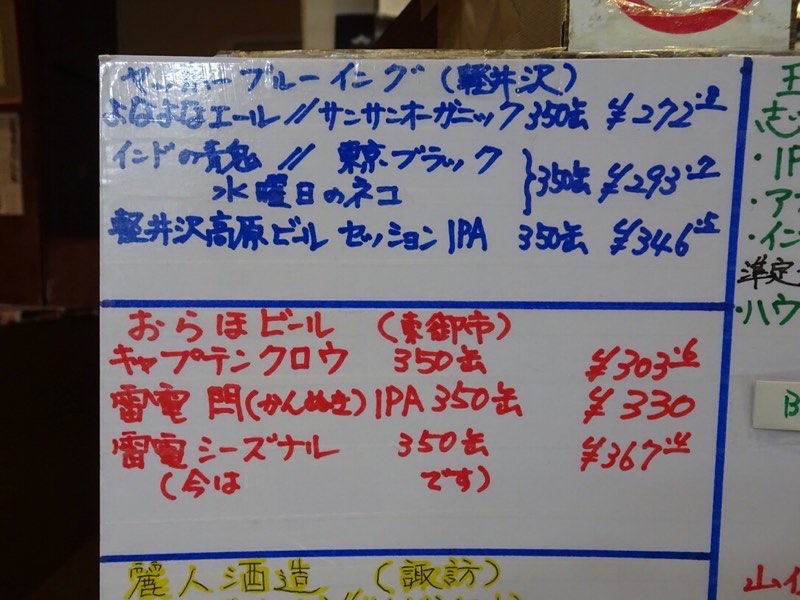 ヤッホーブルーイング (軽井沢)
よなよなエール // サンサンオーガニック 350缶 ¥272
インドの青鬼 // 東京ブラック
水曜日のネコ
350缶 ¥293
軽井沢高原ビール セッションIPA 350缶 ¥346
おらほビール (東御市)
キャプテンクロウ 350缶 ¥303
雷電 閂(かんぬき)IPA 350缶 ¥330
雷電シーズナル 350缶 ¥367
(今は です)
麗人酒造 (諏訪)
志
・IP
・ア
・イン
準定
・ハウ
B
山